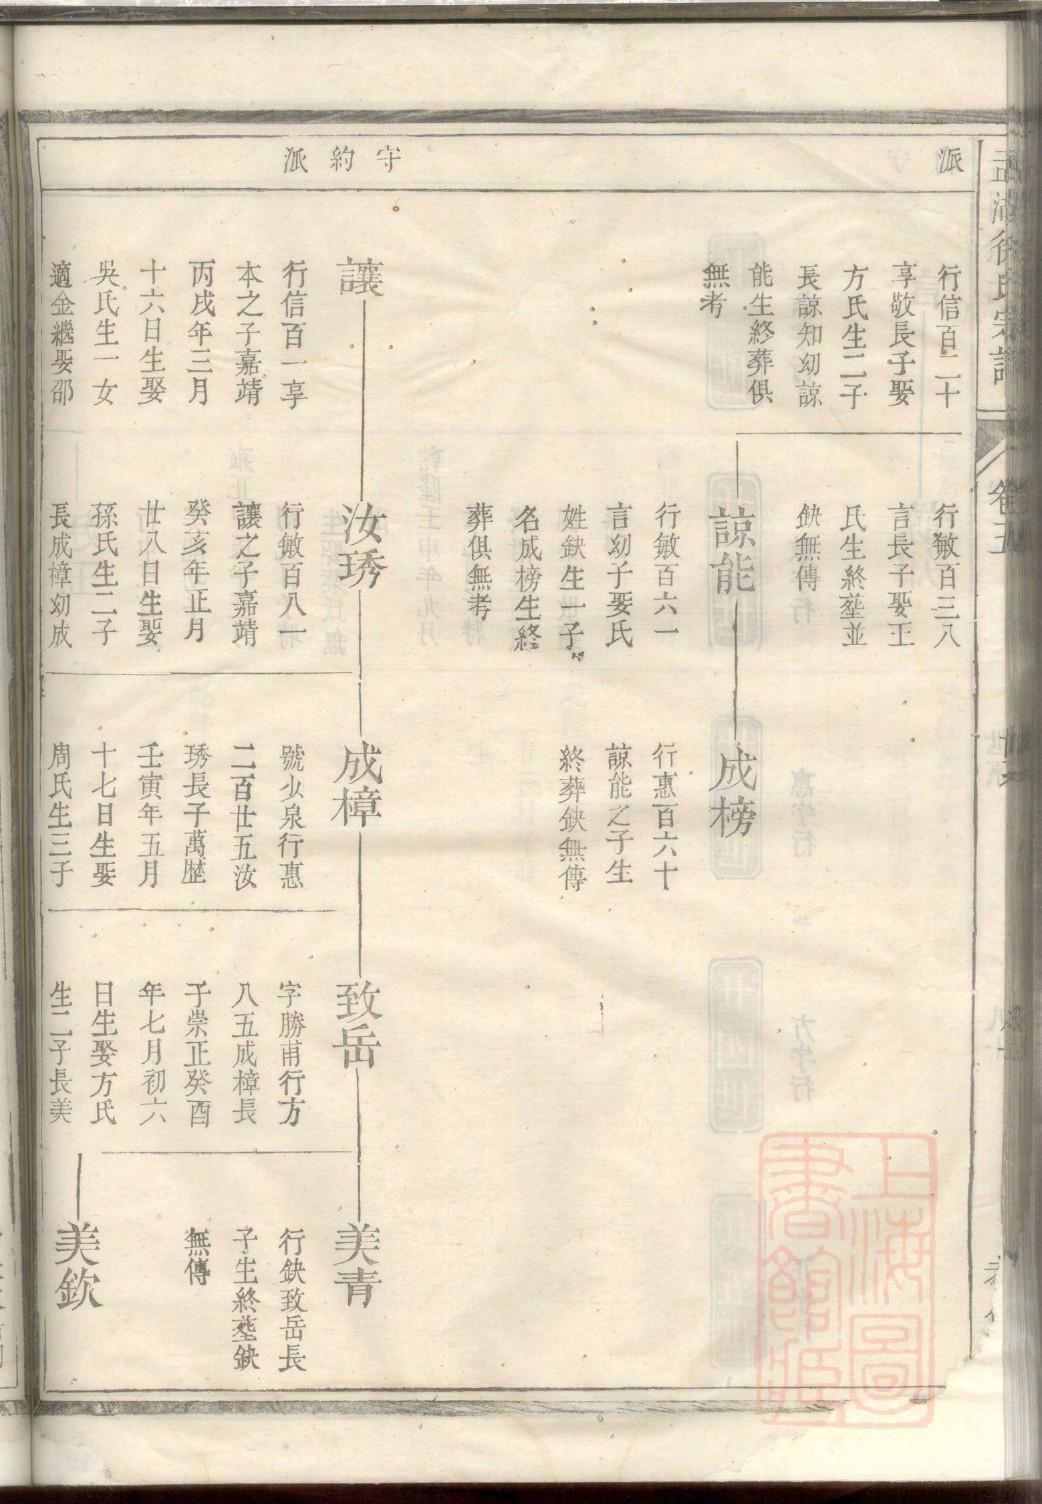 派
行信百二十
享敬長子娶
方氏生二子
長諒知幼諒
能生終葬俱
無考
行敏百三八
言長子娶王
氏生終塟並
缺無傳
諒能
行敏百六一
言幼子娶氏
姓缺生一子
名成榜生終
葬俱無考
成榜
行惠百六十
諒能之子生
終葬缺無傳
守約派
讓
行信百一享
本之子嘉靖
丙戌年三月
十六日生娶
吳氏生一女
適金繼娶邵
汝琇
行敏百八一
讓之子嘉靖
癸亥年正月
廿八日生娶
孫氏生二子
長成樟幼成
成樟
號少泉行惠
二百廿五汝
琇長子萬歴
壬寅年五月
十七日生娶
周氏生三子
致岳
字勝甫行方
八五成樟長
子崇正癸酉
年七月初六
日生娶方氏
生二子長美
美青
行缺致岳長
子生終塟缺
無傳
美欽
徐氏宗譜
卷五
上海圖書館藏